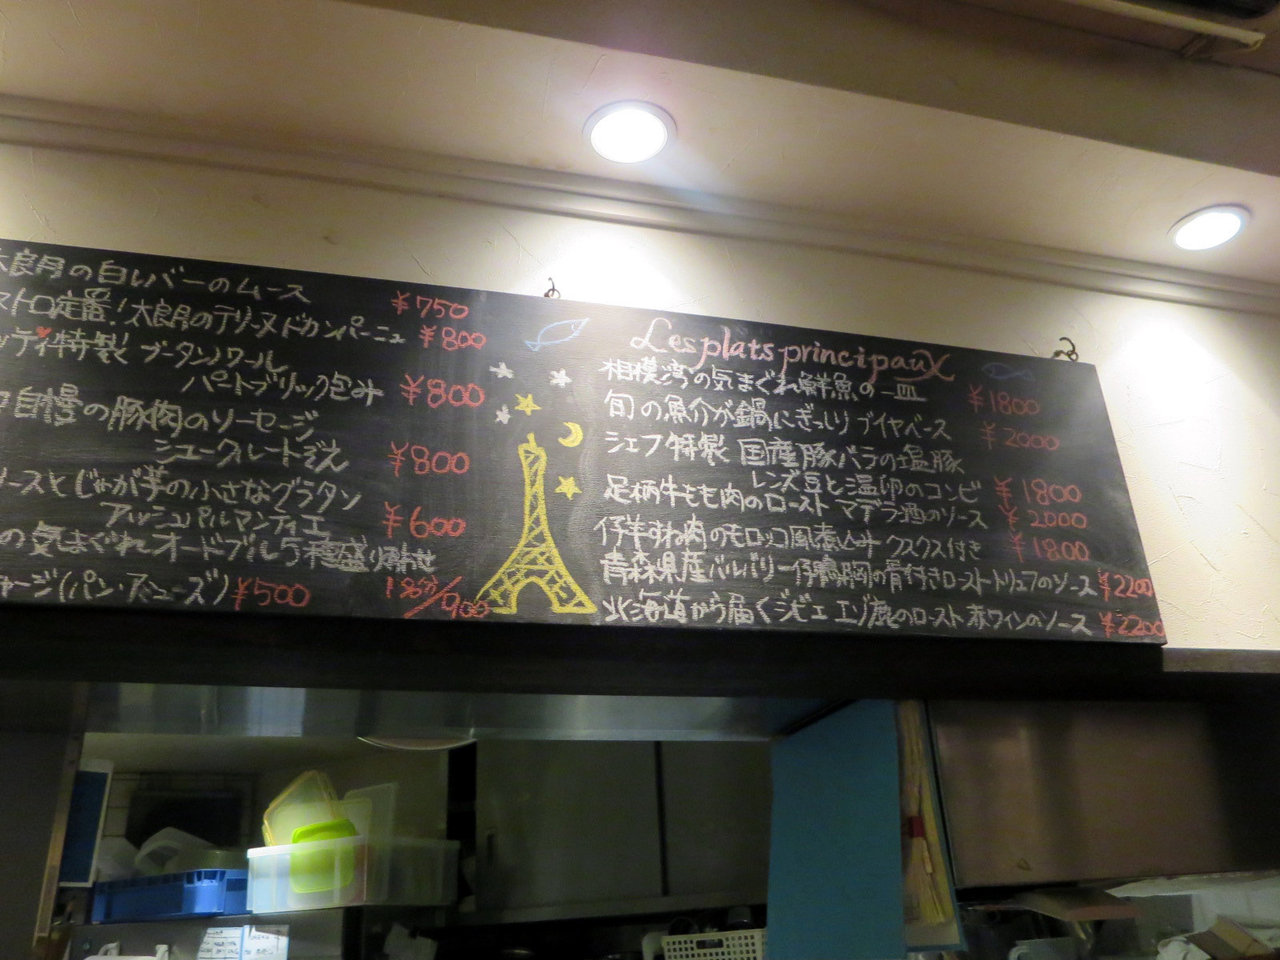 大良月の白レバーのムース ¥750
ストロ定番！大良月のテリーヌドカンパーニュ ¥800
ッティ特製 ブータンノワール
パートブリック包み ¥800
自慢の豚肉のソーセージ
シュークルート添え ¥800
ソースとじゃが芋の小さなグラタン
アッシュパルマンティエ ¥600
の気まぐれオードブル5種盛り合わせ
ャージ(パン・アミューズ) ¥500 1名分/900
Les plats principaux
相模湾の気まぐれ鮮魚の一皿 ¥1800
旬の魚介が鍋にぎっしり ブイヤベース ¥2000
シェフ特製 国産豚バラの塩豚
レンズ豆と温卵のコンビ ¥1800
足柄牛もも肉のロースト マデラ酒のソース ¥2000
仔羊すね肉のモロッコ風煮込み クスクス付き ¥1800
青森県産バルバリー仔鴨胸の骨付きロースト トリュフのソース ¥2200
北海道から届くジビエ エゾ鹿のロースト 赤ワインのソース ¥2200